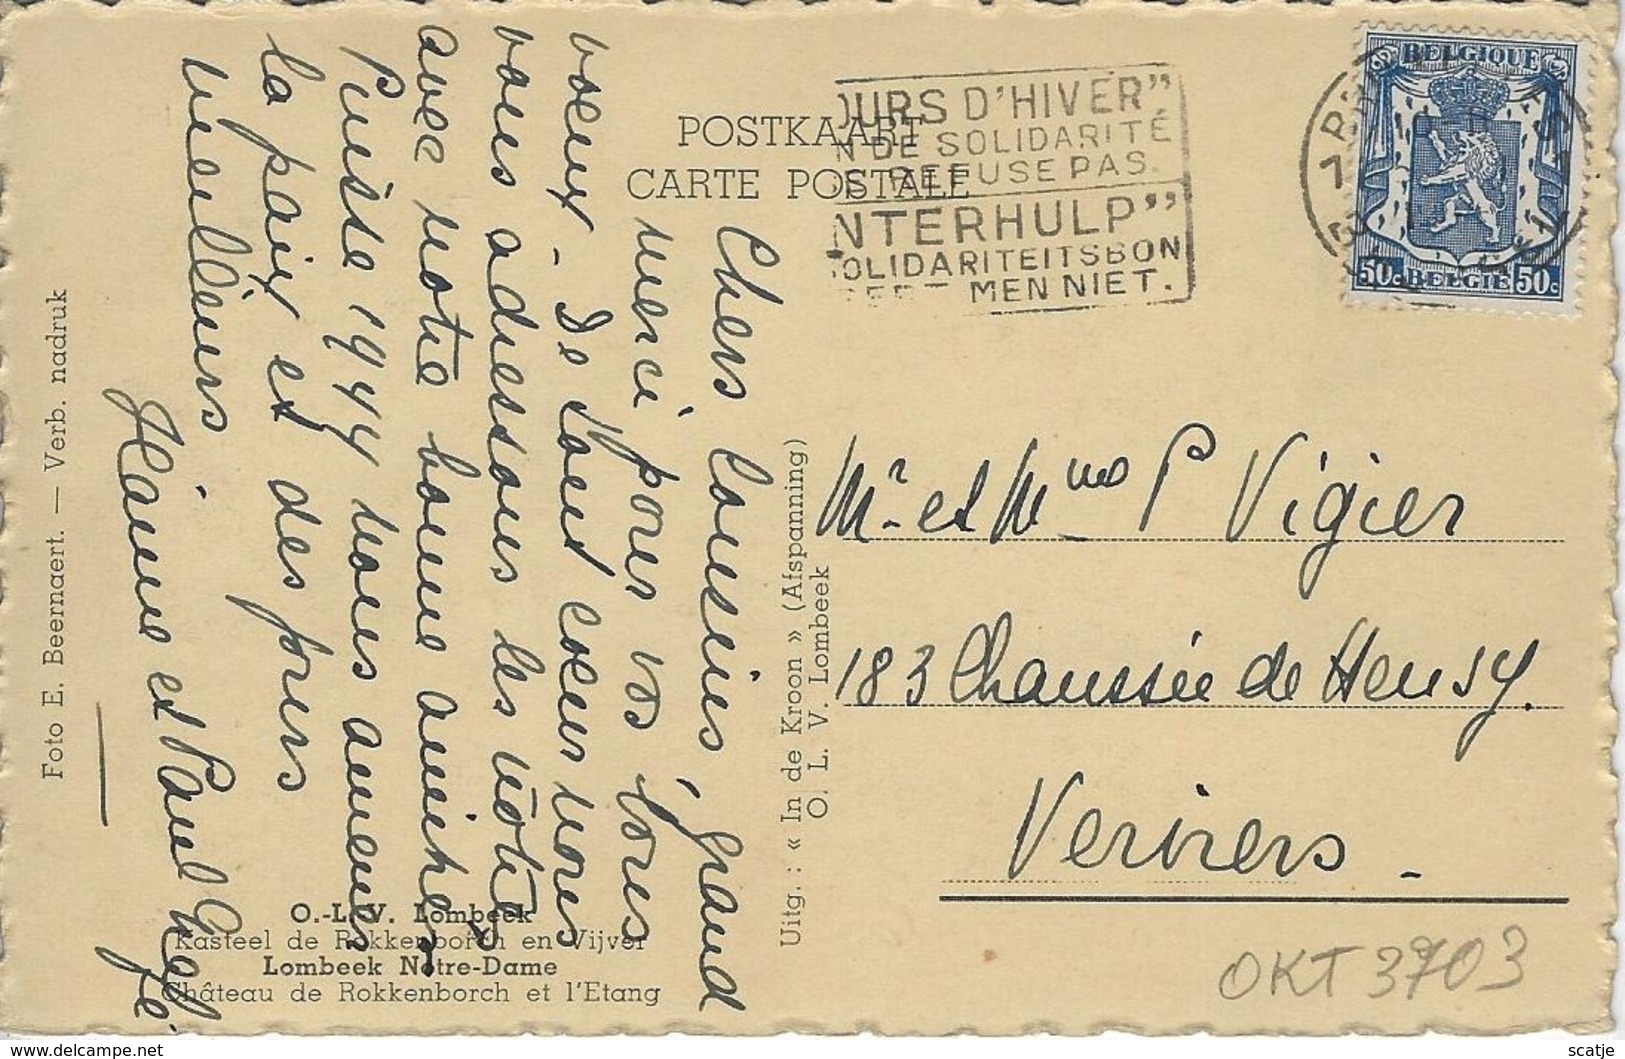 POSTKAART
CARTE POSTALE
OURS D'HIVER"
N DE SOLIDARITÉ
SE REFUSE PAS.
NTERHULP"
OLIDARITEITSBON
MEN NIET.
BELGIQUE
50c BELGIE 50c
Chers Cousins, grand
merci pour vos bons
voeux - De tout coeur nous
vous adressons les nôtres
avec notre bonne amitié
Puisse 1944 nous amener
la paix et des jours
meilleurs
et Paul
Mr et Mme P Vigier
183 Chaussée de Heusy.
Verviers.
Foto E. Beernaert. — Verb. nadruk
Uitg. : « In de Kroon » (Afspanning)
O. L. V. Lombeek
O.-L.-V. Lombeek
Kasteel de Rokkenborch en Vijver
Lombeek Notre-Dame
Château de Rokkenborch et l'Etang
OKT 3703
www.delcampe.net
scatje